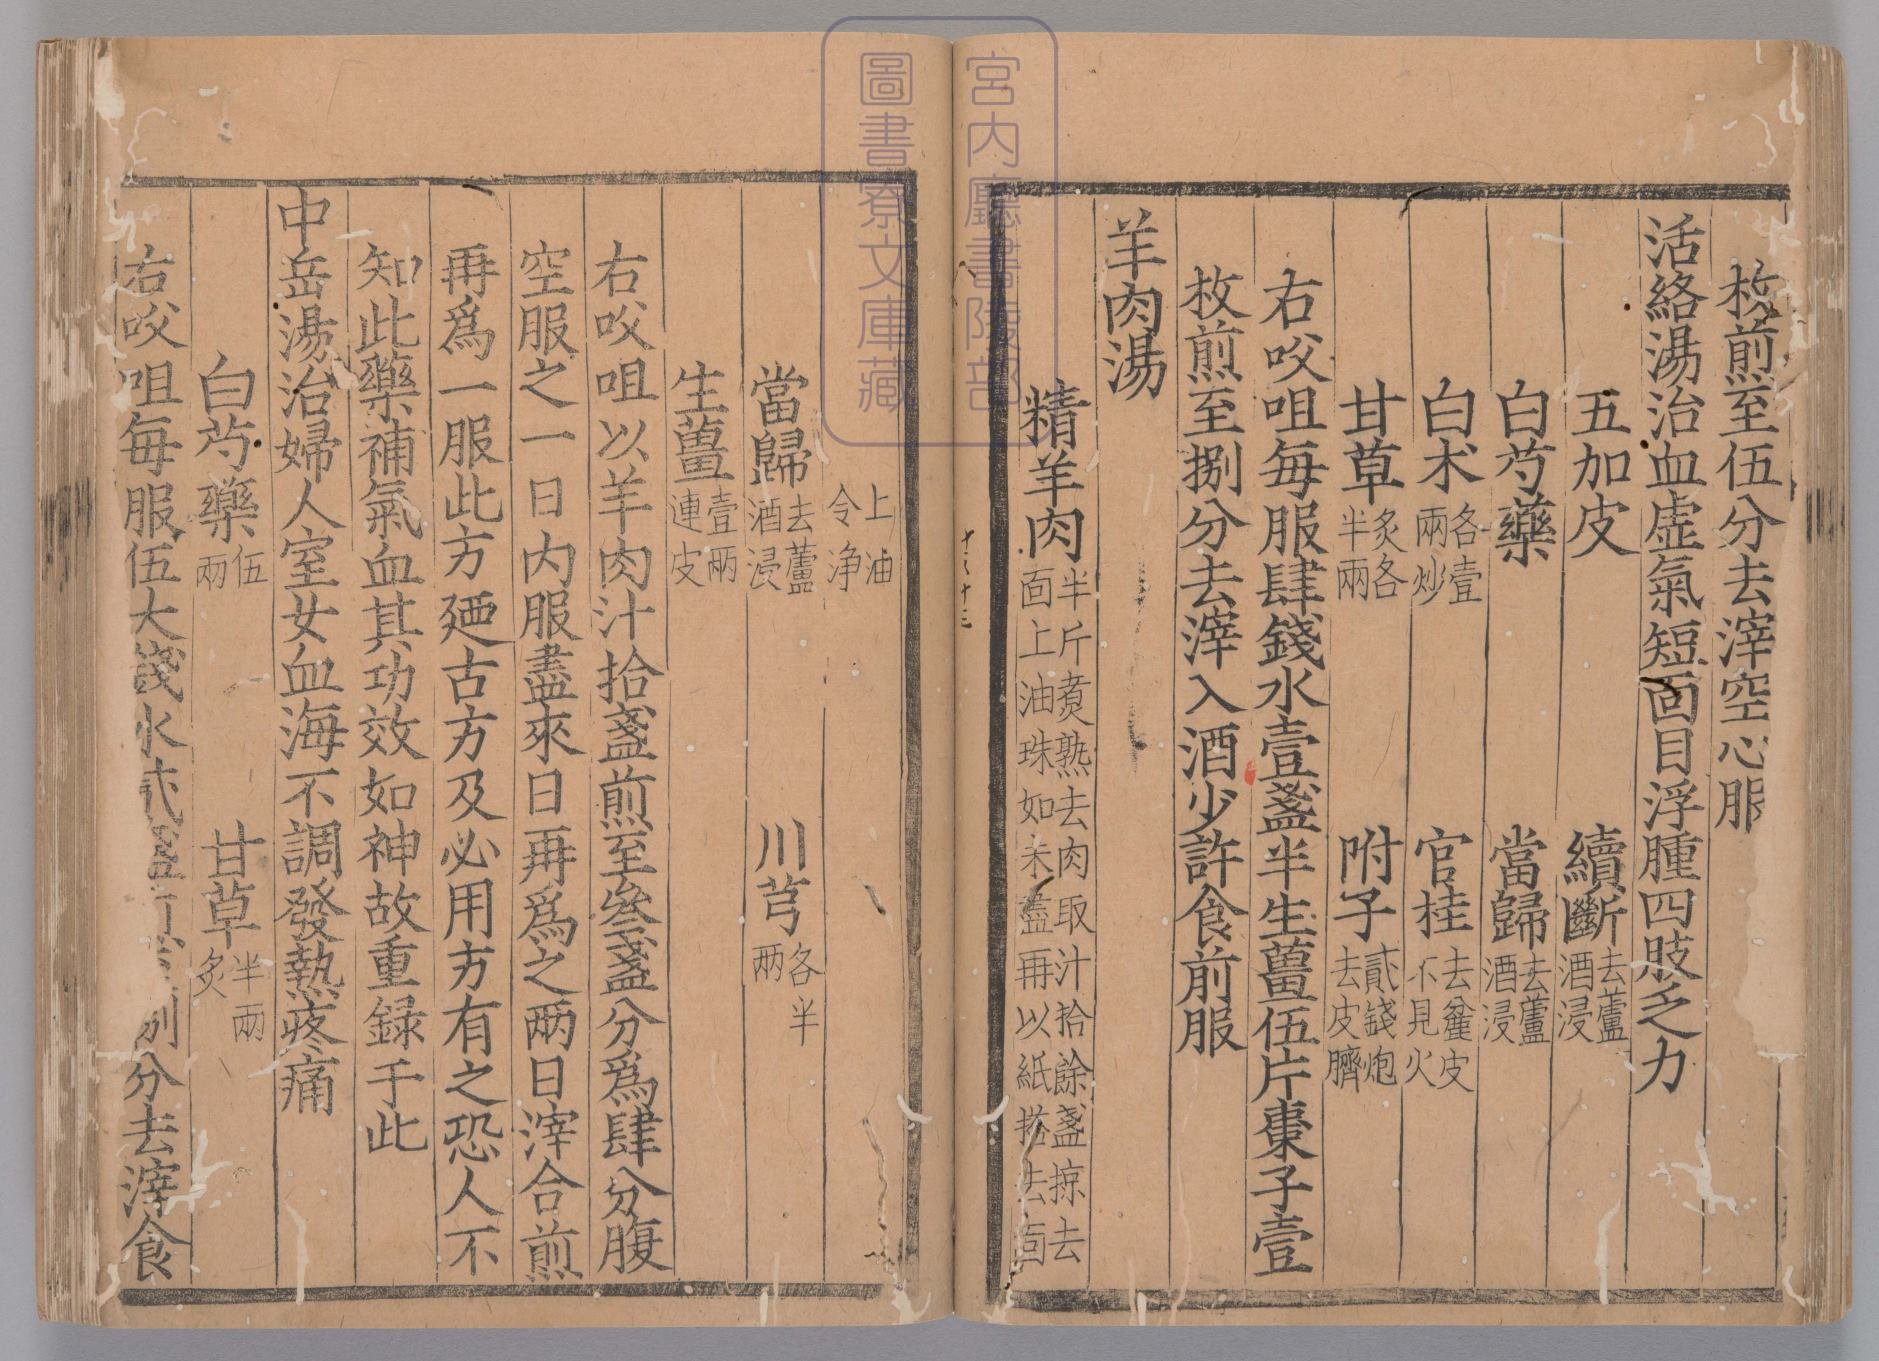 枚煎至伍分去滓空心服
活絡湯治血虚氣短面目浮腫四肢乏力
五加皮　續斷去蘆酒浸
白芍藥　當歸去蘆酒浸
白朮各壹兩炒　官桂去麄皮不見火
甘草炙各半兩　附子貳錢炮去皮臍
右㕮咀每服肆錢水壹盞半生薑伍片棗子壹
枚煎至捌分去滓入酒少許食前服
羊肉湯
精羊肉半斤煑熟去肉取汁拾餘盞掠去面上油珠如未盡再以紙搭去面
上油令净
當歸去蘆酒浸　川芎各半兩
生薑壹兩連皮
右㕮咀以羊肉汁拾盞煎至叄盞分爲肆分腹
空服之一日内服盡來日再爲之兩日滓合煎
再爲一服此方廼古方及必用方有之恐人不
知此藥補氣血其功效如神故重録于此
中岳湯治婦人室女血海不調發熱疼痛
白芍藥伍兩　甘草半兩炙
右㕮咀每服伍大錢水貳盞捌分去滓食
宮内廳書陵部
圖書寮文庫藏